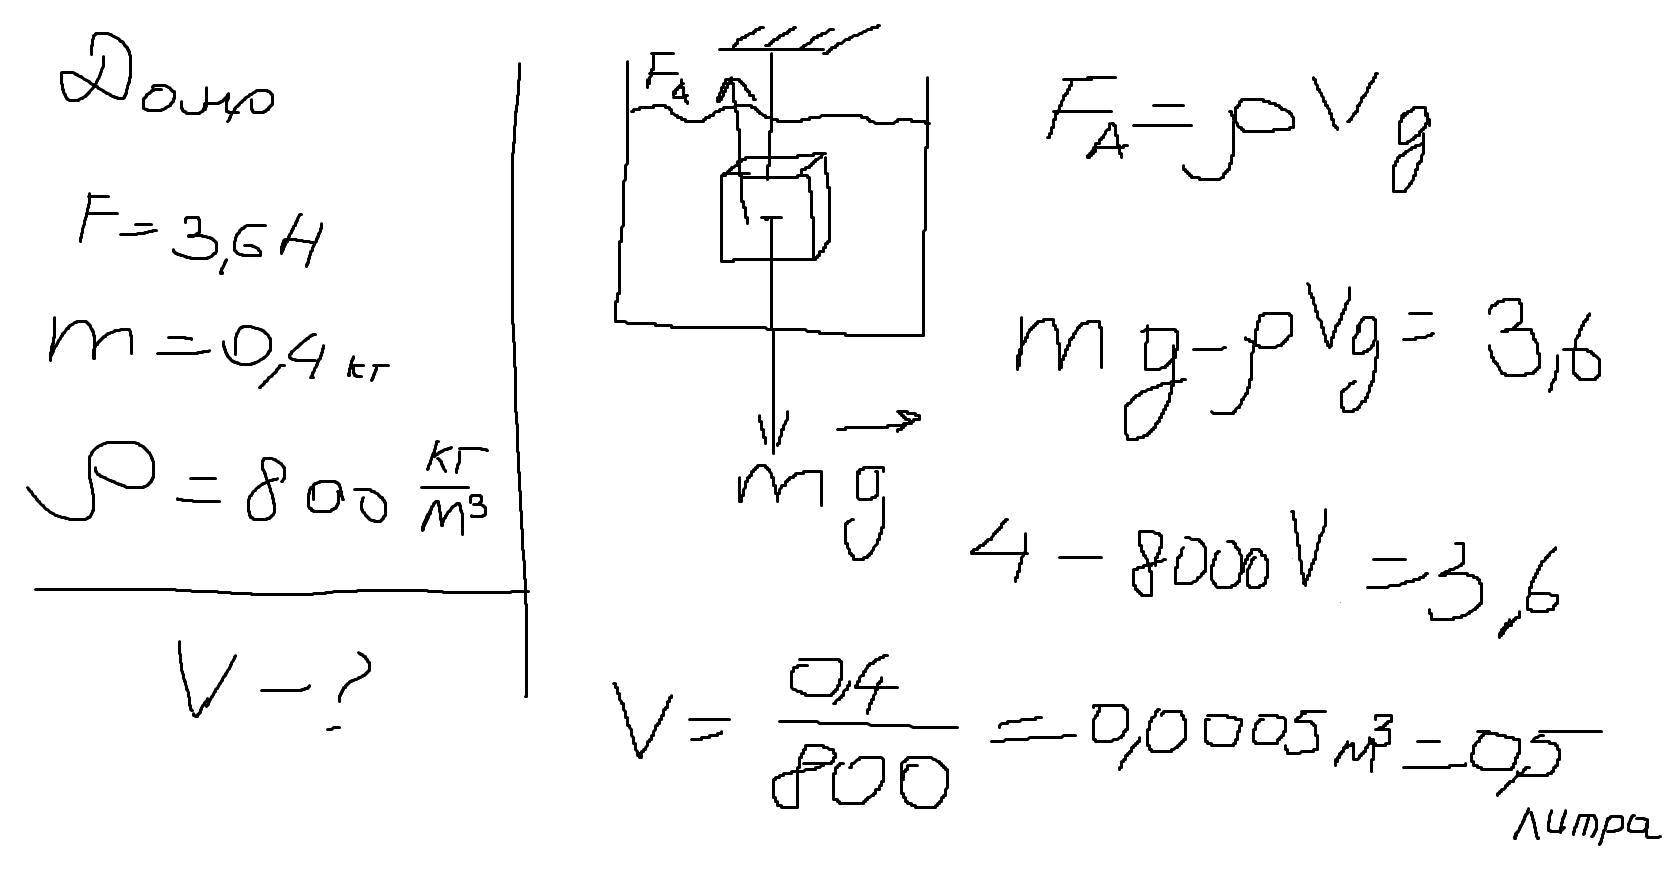 Дано
F = 3,6 Н
m = 0,4 кг
ρ = 800 кг/м³
V – ?
F_A
mg
F_A = ρVg
mg – ρVg = 3,6
4 – 8000V = 3,6
V = 0,4/800 = 0,0005 м³ = 0,5
литра